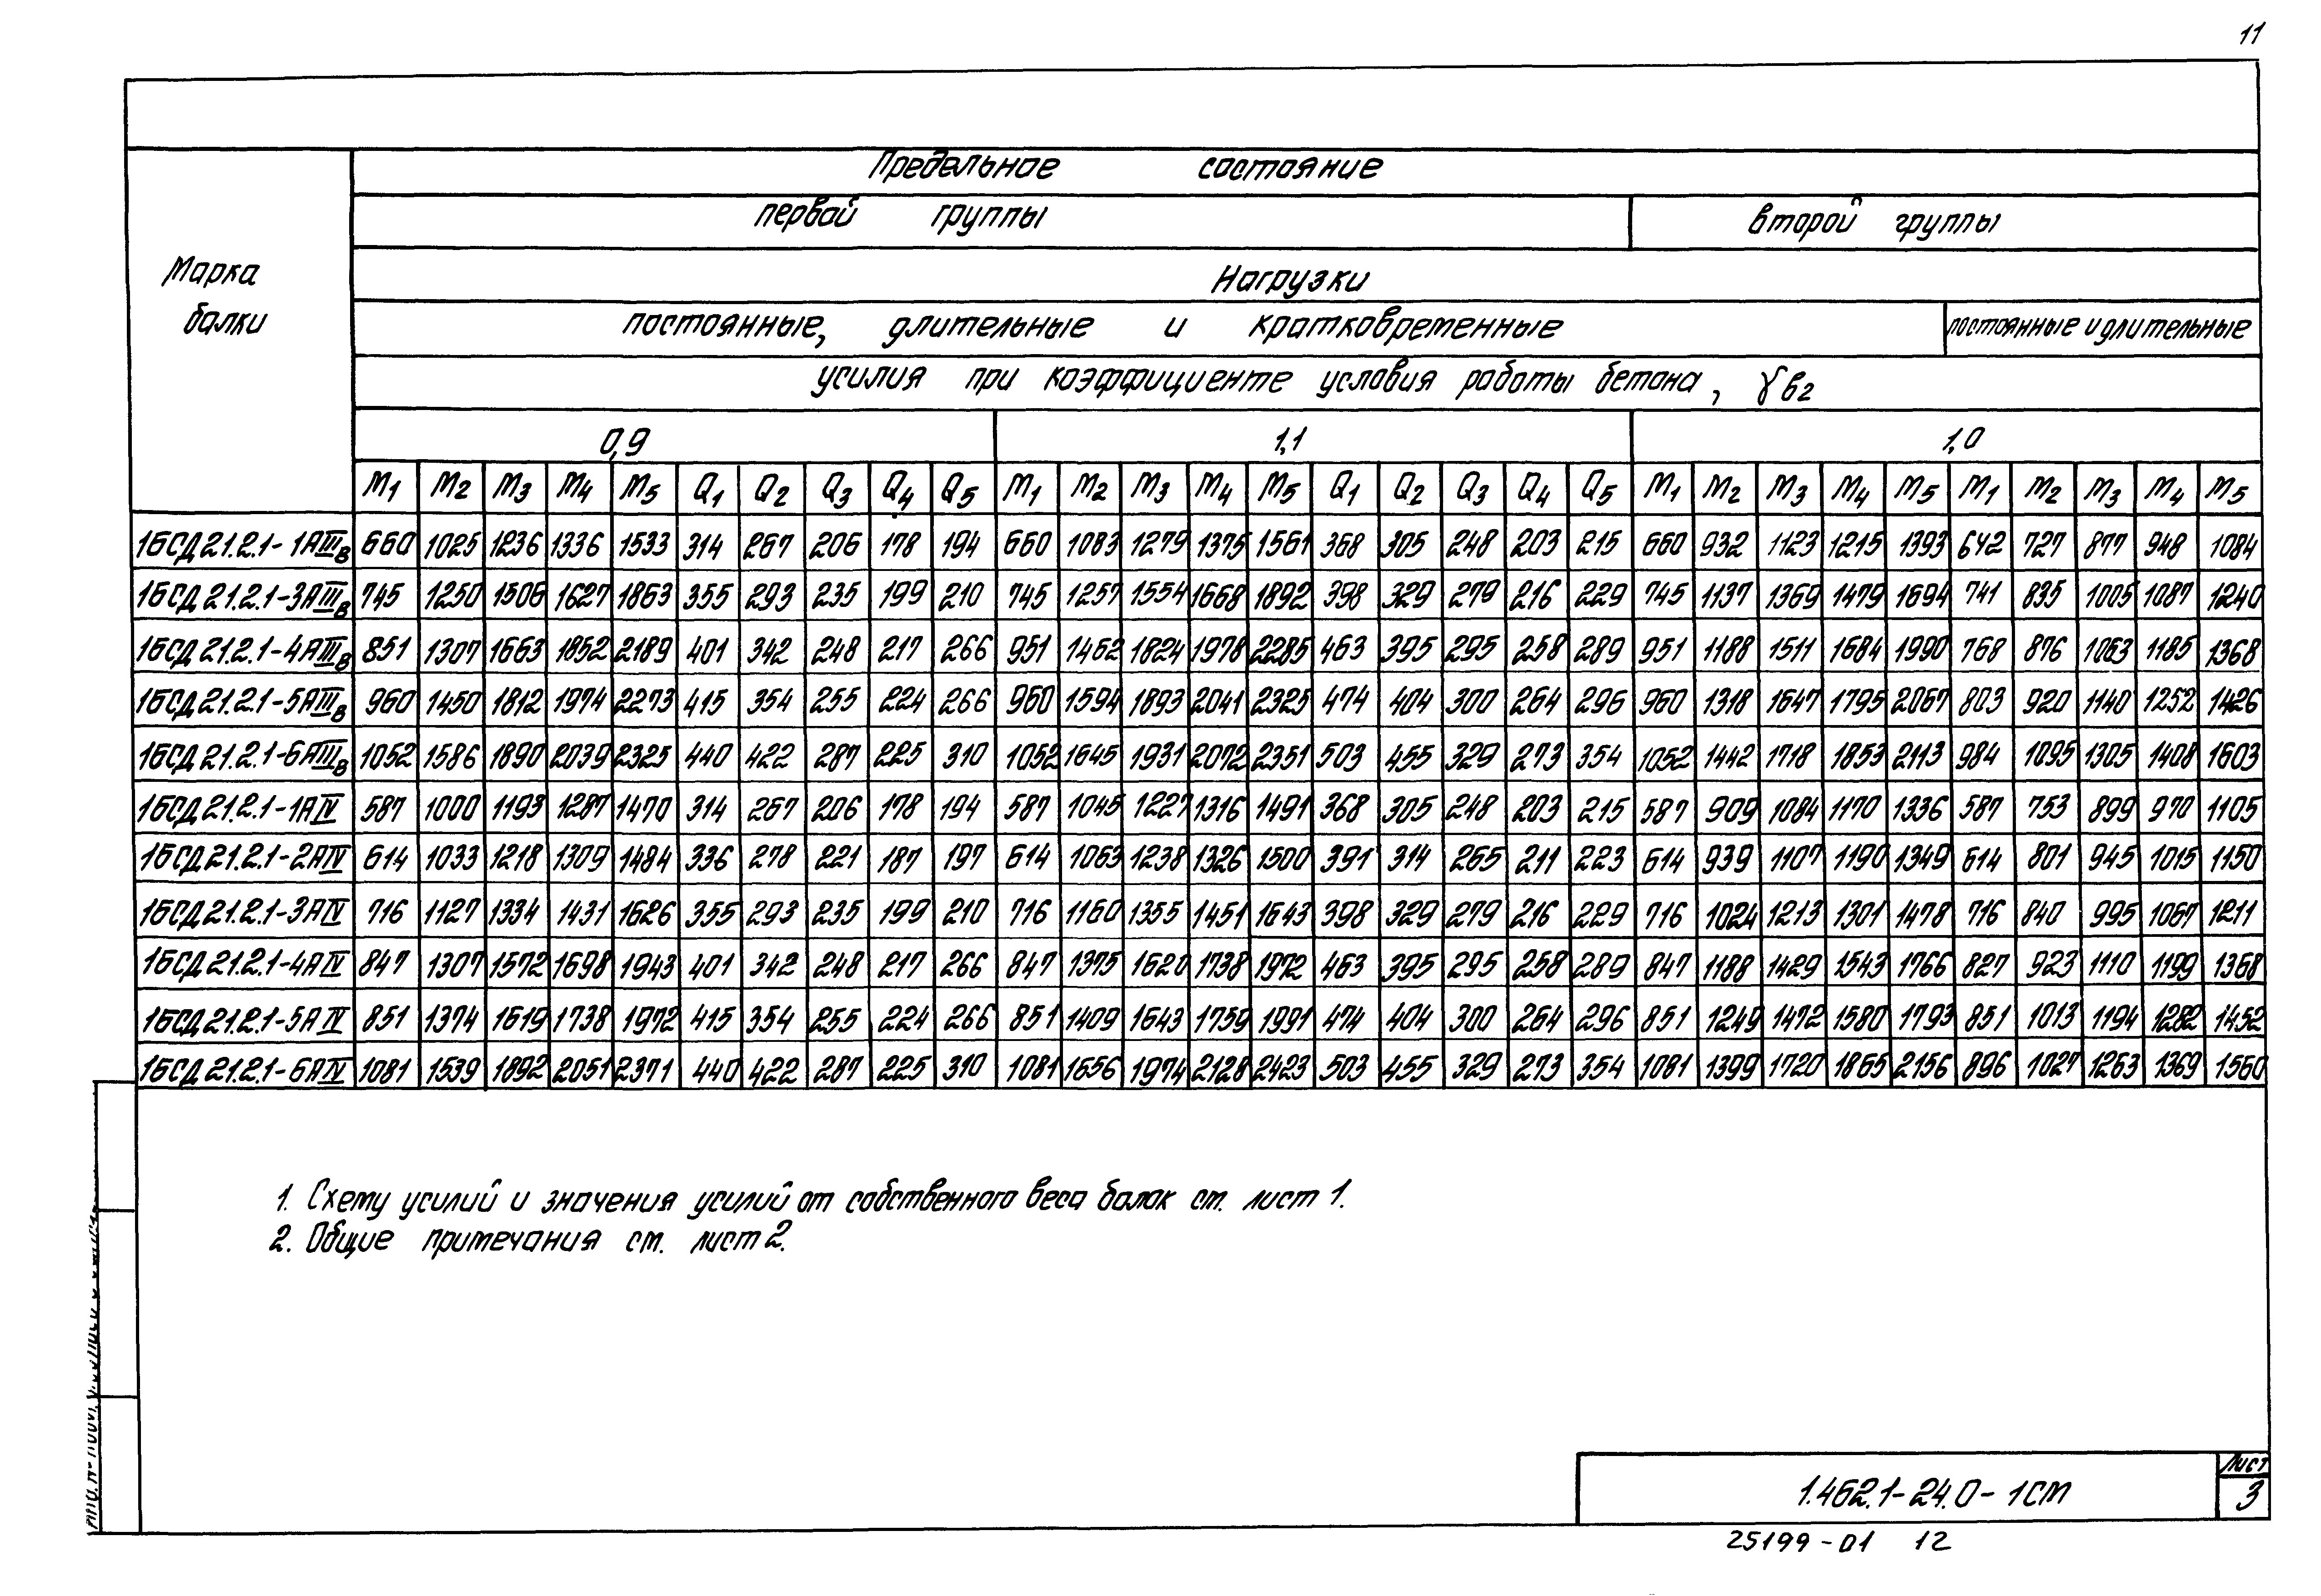 11
Предельное состояние
первой группы второй группы
Марка балки
Нагрузки
постоянные, длительные и кратковременные постоянные и длительные
усилия при коэффициенте условия работы бетона, γв2
0,9 1,1 1,0
M1 M2 M3 M4 M5 Q1 Q2 Q3 Q4 Q5 M1 M2 M3 M4 M5 Q1 Q2 Q3 Q4 Q5 M1 M2 M3 M4 M5 M1 M2 M3 M4 M5
1БСД21.2.1-1АIIIв 660 1025 1236 1336 1533 314 267 206 178 194 660 1083 1279 1375 1561 368 305 248 203 215 660 932 1123 1215 1393 642 727 877 948 1084
1БСД21.2.1-3АIIIв 745 1250 1506 1627 1863 355 293 235 199 210 745 1257 1554 1668 1892 398 329 279 216 229 745 1137 1369 1479 1694 741 835 1005 1087 1240
1БСД21.2.1-4АIIIв 851 1307 1663 1852 2189 401 342 248 217 266 951 1462 1824 1978 2285 463 395 295 258 289 951 1188 1511 1684 1990 768 876 1063 1185 1368
1БСД21.2.1-5АIIIв 960 1450 1812 1974 2273 415 354 255 224 266 960 1594 1893 2041 2325 474 404 300 264 296 960 1318 1647 1795 2067 803 920 1140 1252 1426
1БСД21.2.1-6АIIIв 1052 1586 1890 2039 2325 440 422 287 225 310 1052 1645 1931 2072 2351 503 455 329 273 354 1052 1442 1718 1853 2113 984 1095 1305 1408 1603
1БСД21.2.1-1АIV 587 1000 1193 1287 1470 314 267 206 178 194 587 1045 1227 1316 1491 368 305 248 203 215 587 909 1084 1170 1336 587 753 899 970 1105
1БСД21.2.1-2АIV 614 1033 1218 1309 1484 336 278 221 187 197 614 1063 1238 1326 1500 391 314 265 211 223 614 939 1107 1190 1349 614 801 945 1015 1150
1БСД21.2.1-3АIV 716 1127 1334 1431 1626 355 293 235 199 210 716 1160 1355 1451 1643 398 329 279 216 229 716 1024 1213 1301 1478 716 840 995 1067 1211
1БСД21.2.1-4АIV 847 1307 1572 1698 1943 401 342 248 217 266 847 1375 1620 1738 1972 463 395 295 258 289 847 1188 1429 1543 1766 827 923 1110 1199 1368
1БСД21.2.1-5АIV 851 1374 1619 1738 1972 415 354 255 224 266 851 1409 1643 1759 1991 474 404 300 264 296 851 1249 1472 1580 1793 851 1013 1194 1282 1452
1БСД21.2.1-6АIV 1081 1539 1892 2051 2371 440 422 287 225 310 1081 1656 1974 2128 2423 503 455 329 273 354 1081 1399 1720 1865 2156 896 1027 1263 1369 1560
1. Схему усилий и значения усилий от собственного веса балок см. лист 1.
2. Общие примечания см. лист 2.
1.462.1-24.0-1СМ
Лист
3
25199-01 12